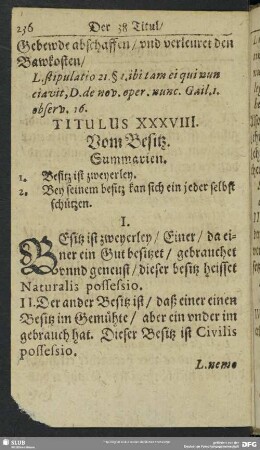 236 Der 38 Titul/
Gebewde abschaffen/ vnd verleuret den
Bawkosten/
L. stipulatio 21. § 1. ibi tam ei qui nun
ciavit, D. de nov. oper. nunc. Gail, 1.
observ. 16.
TITULUS XXXVIII.
Vom Besitz.
Summarien.
1. Besitz ist zweyerley.
2. Bey seinem besitz kan sich ein jeder selbst
schützen.
I.
BEsitz ist zweyerley/ Einer/ da ei-
ner ein Gut besitzet/ gebrauchet
vnnd geneust/ dieser besitz heisset
Naturalis possessio.
II. Der ander Besitz ist/ daß einer einen
Besitz im Gemühte/ aber ein vnder im
gebrauch hat. Dieser Besitz ist Civilis
possessio.
L. nemo
SLUB
DFG